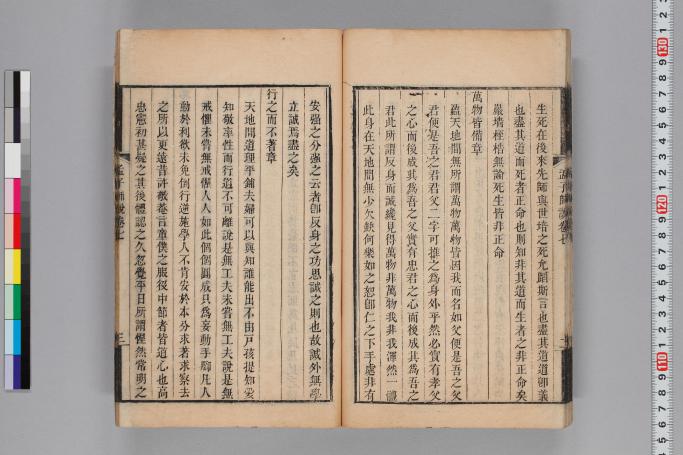 生死在後來先師與世培之死允蹈斯言也盡其道道卽義
也盡其道而死者正命也則知非其道而生者之非正命矣
巖墻桎梏無論死生皆非正命
萬物皆備章
盈天地間無所謂萬物萬物皆因我而名如父便是吾之父
君便是吾之君君父二字可推之爲身外乎然必實有孝父
之心而後成其爲吾之父實有忠君之心而後成其爲吾之
君此所謂反身而誠纔見得萬物非萬物我非我渾然一體
此身在天地間無少欠缺何樂如之恕卽仁之下手處非有
孟子師說卷七
安强之分强之云者卽反身之功思誠之則也故誠外無學
立誠焉盡之矣
行之而不著章
天地間道理平鋪夫婦可以與知誰能出不由戶孩提知愛
知敬率性而行道不可離說是無工夫未嘗無工夫說是無
戒懼未嘗無戒懼人人如此個個圓成只爲妄動手腳凡人
動於利欲未免倒行逆施學人不肯安於本分求著求察去
之所以更遠昔許敬菴言童僕之服役中節者皆道心也高
忠憲初甚疑之其後體認之久忽覺平日所謂惺然常明之
孟子師說卷七
三